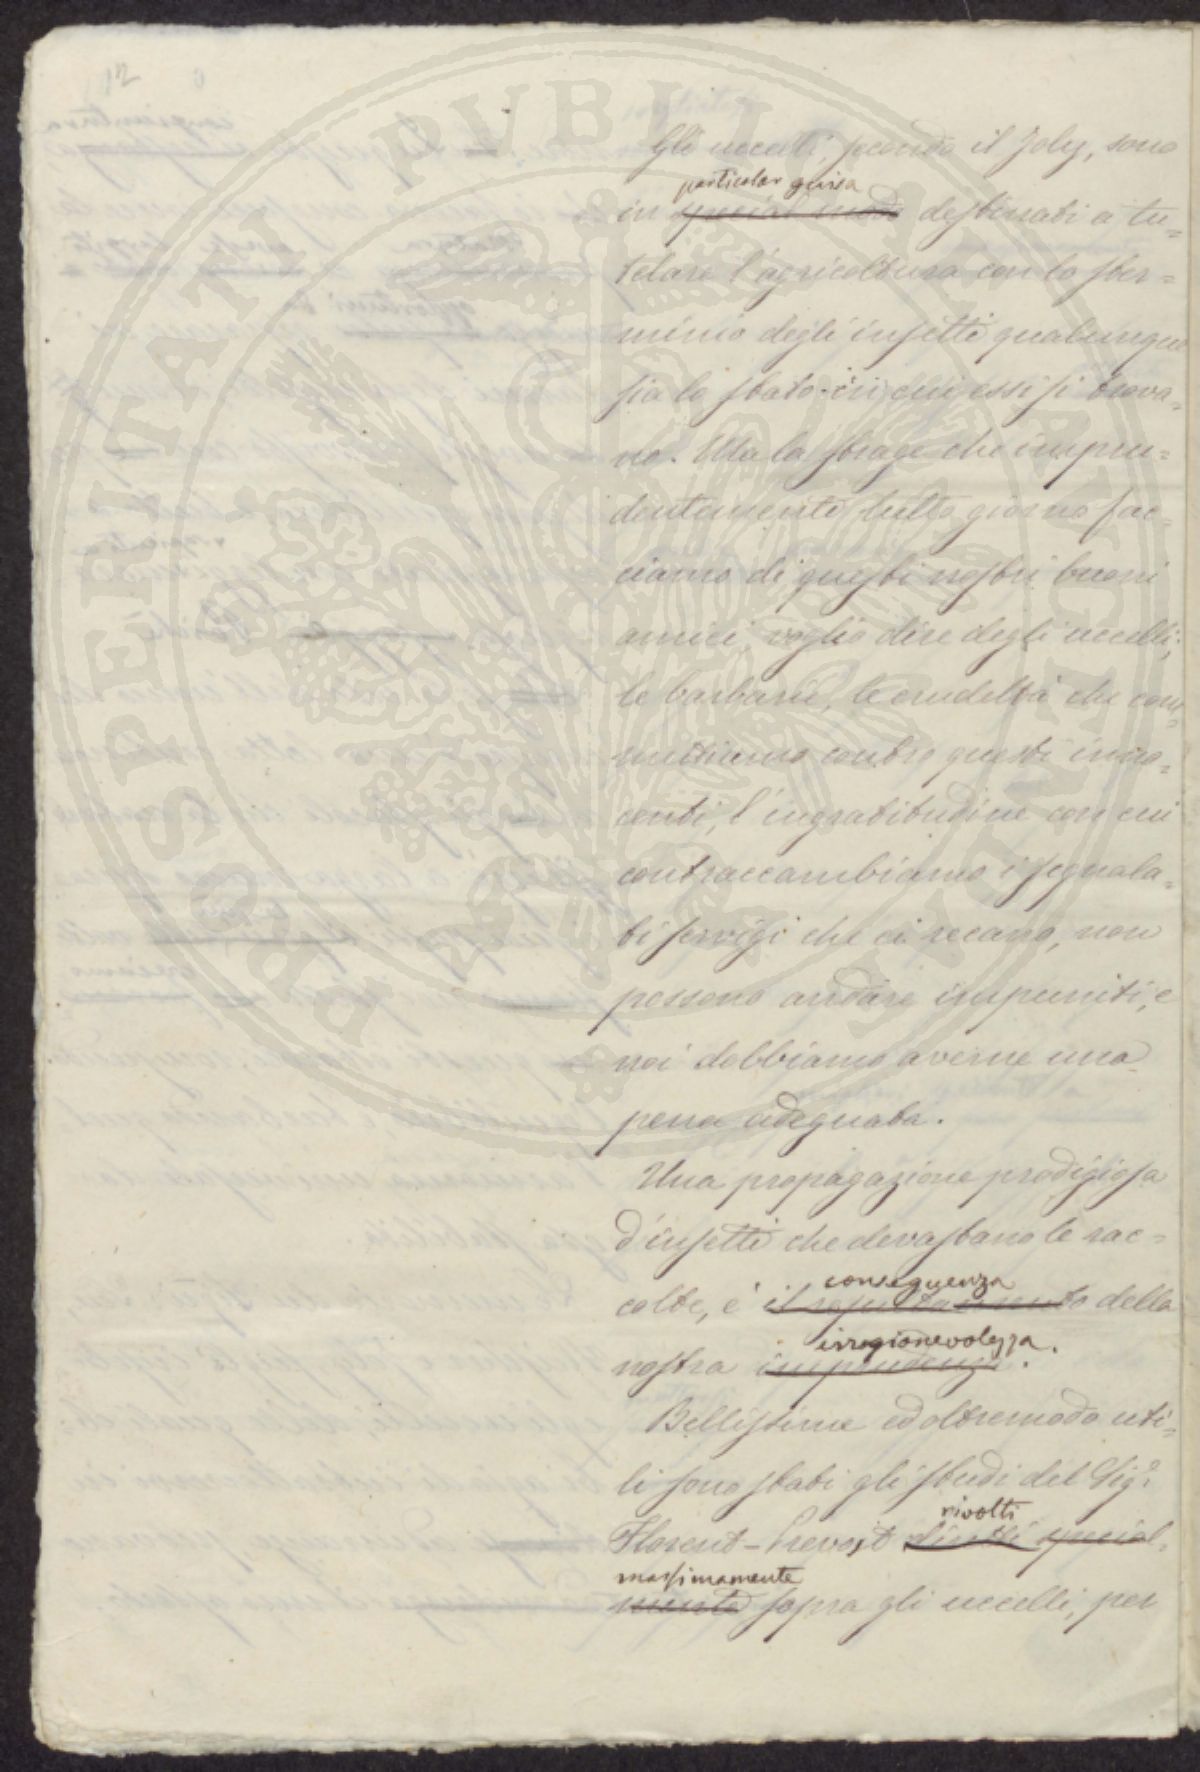 12
Gli uccelli, secondo il Joly, sono
particolar guisa
in special modo destinati a tu=
telare l'agricoltura con lo ster=
minio degli insetti qualunque
sia lo stato in cui essi si trova=
no. Ma la strage che impru=
dentemente tutto giorno fac=
ciamo di questi nostri buoni
amici, voglio dire degli uccelli;
le barbarie, le crudeltà che com=
mettiamo contro questi inno=
centi, l'ingratitudine con cui
contraccambiamo i segnala=
ti servigi che ci recano, non
possono andare impuniti, e
noi dobbiamo averne una
pena adeguata.
Una propagazione prodigiosa
d'insetti che devastano le rac=
conseguenza
colte, è il della
irragionevolezza.
nostra imprudenza.
Bellissimi ed oltremodo uti=
li sono stati gli studi del Sig.r
rivolti
Florent-Prevost diretti special=
massimamente
mente sopra gli uccelli, per
PROSPERITATI PUBLICAE AUGENDAE